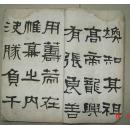 煥知其祖
高帝龍興
有張良善
用籌策在
帷幕之内
決勝負千